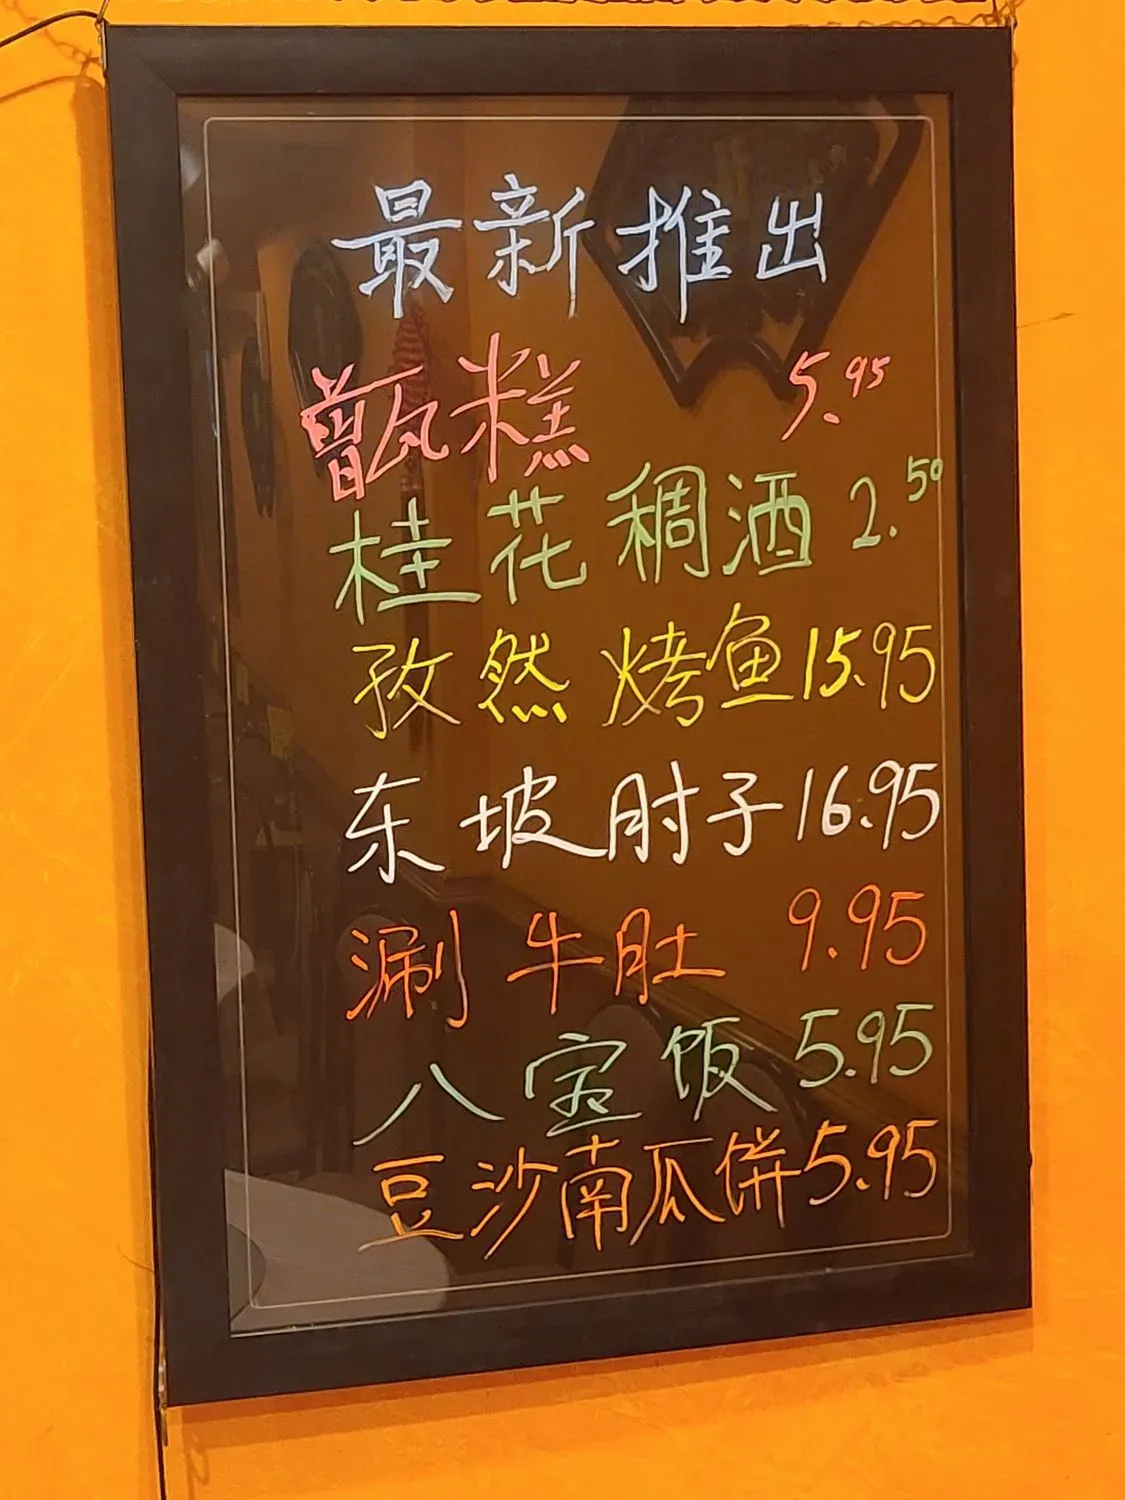 最新推出
甑糕 5.95
桂花稠酒 2.50
孜然烤鱼 15.95
东坡肘子 16.95
涮牛肚 9.95
八宝饭 5.95
豆沙南瓜饼 5.95